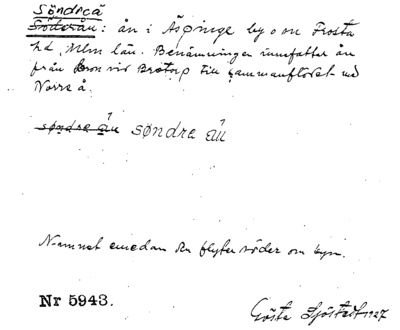 Söndreå
Söderån: ån i Äspinge by o sn Frosta
hd, Mlm län. Benämningen innefattar ån
från bron vid Brotorp till sammanflödet med
Norra å.
søndre ån søndra ån
Namnet emedan den flyter söder om byn.
Nr 5943.
Gösta Sjöstedt 1927